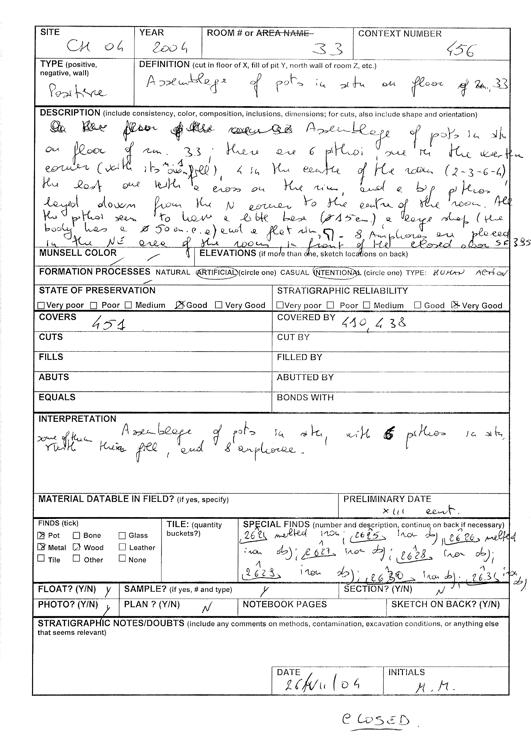 SITE YEAR ROOM # or AREA NAME CONTEXT NUMBER
CH 04 2004 33 456
TYPE (positive, negative, wall) DEFINITION (cut in floor of X, fill of pit Y, north wall of room Z, etc.)
Positive Assemblage of pots in situ on floor of rm. 33
DESCRIPTION (include consistency, color, composition, inclusions, dimensions; for cuts, also include shape and orientation)
Assemblage of pots in situ
on floor of rm. 33; there are 6 pithoi, one in the western
corner (with its fill), 4 in the centre of the room (2-3-6-4)
the last one with a cross on the rim, and a big pithos
layed down from the N corner to the centre of the room. All
the pithoi seem to have a little base (ø 15 cm) a large shap (the
body has a ø 50 cm c.a) and a flat rim. 8 Amphorae are placed
in the NE area of the room in front of the closed door SF 395
MUNSELL COLOR ELEVATIONS (if more than one, sketch locations on back)
FORMATION PROCESSES NATURAL ARTIFICIAL (circle one) CASUAL INTENTIONAL (circle one) TYPE: HUMAN ACTION
STATE OF PRESERVATION STRATIGRAPHIC RELIABILITY
Very poor Poor Medium Good Very Good Very poor Poor Medium Good Very Good
COVERS 451 COVERED BY 410, 438
CUTS CUT BY
FILLS FILLED BY
ABUTS ABUTTED BY
EQUALS BONDS WITH
INTERPRETATION
Assemblage of pots in situ, with 6 pithos in situ
some of them with their fill, and 8 amphorae.
MATERIAL DATABLE IN FIELD? (if yes, specify) PRELIMINARY DATE
XIII cent.
FINDS (tick) TILE: (quantity buckets?) SPECIAL FINDS (number and description, continue on back if necessary)
Pot Bone Glass 2624 melted iron obj; 2625 iron obj; 2626 melted
Metal Wood Leather iron obj; 2627 iron obj; 2628 iron obj;
Tile Other None 2629 iron obj; 2630 iron obj; 2631 iron obj
FLOAT? (Y/N) y SAMPLE? (if yes, # and type) y SECTION? (Y/N) N
PHOTO? (Y/N) y PLAN ? (Y/N) N NOTEBOOK PAGES SKETCH ON BACK? (Y/N)
STRATIGRAPHIC NOTES/DOUBTS (include any comments on methods, contamination, excavation conditions, or anything else that seems relevant)
DATE INITIALS
26/VII/04 M.M.
CLOSED.